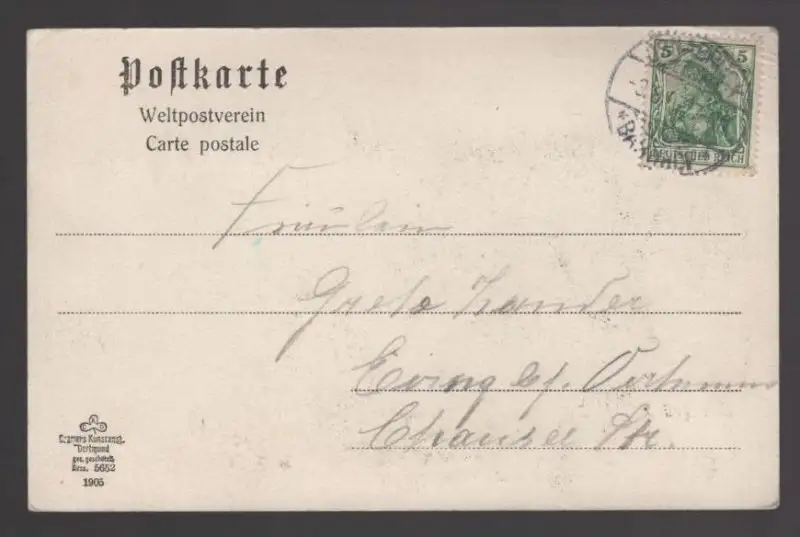 Postkarte
Weltpostverein
Carte postale
5 5
DEUTSCHES REICH
Fräulein
Grete Zander
Eving bei. Dortmund
Chausee Str.
Cramers Kunstanst.
Dortmund
ges. geschützt
5652
1905